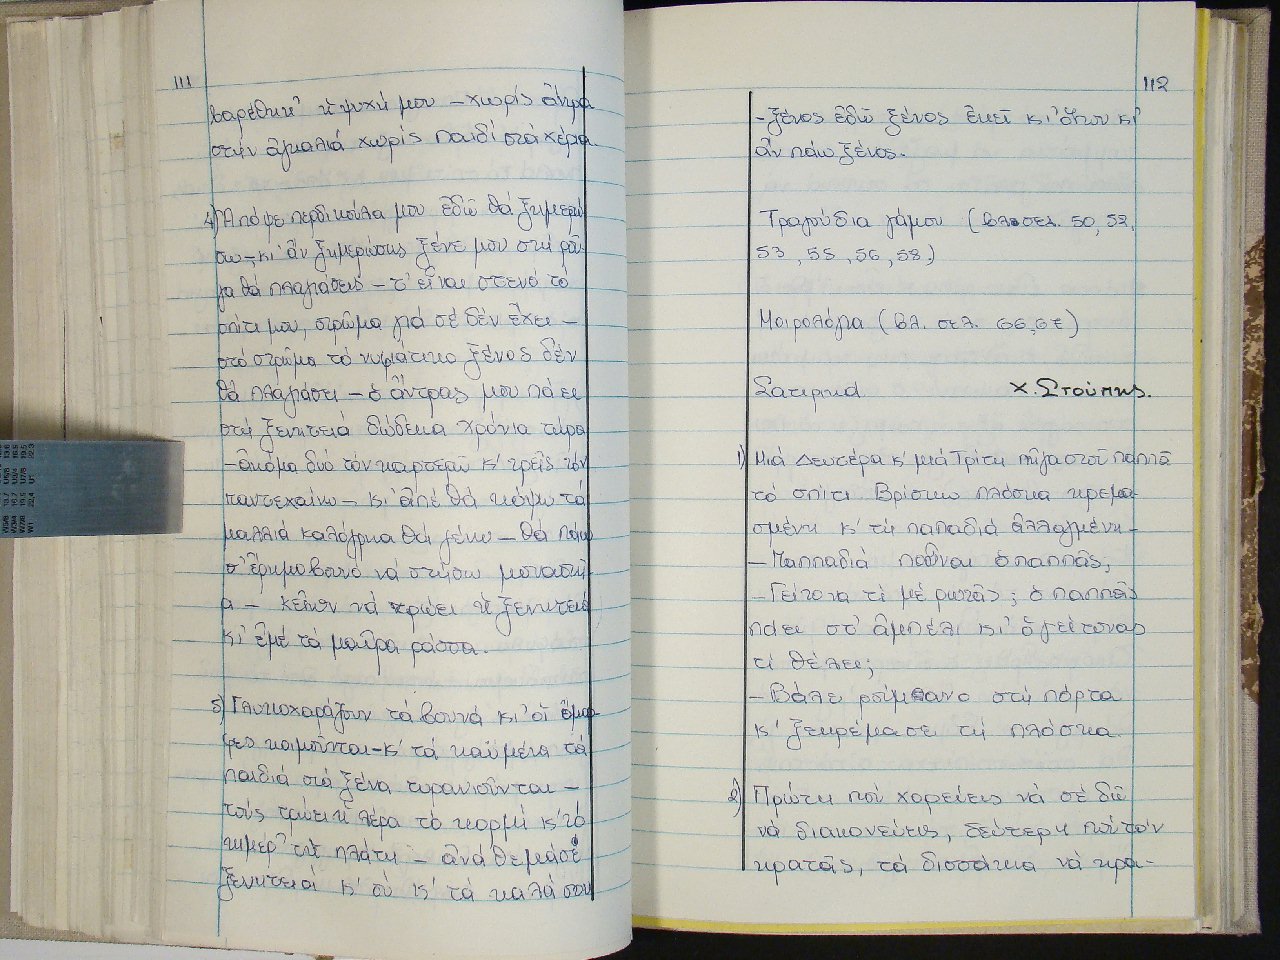 111
βαρέθηκ' ἡ ψυχή μου – χωρίς ἄντρα
στήν ἀγκαλιά χωρίς παιδί στά χέρια
4) Ἀπόψε περδικούλα μου ἐδῶ θά ξημερώ
σω – κι' ἄν ξημερώσης ξένε μου στή ρού-
γα θά πλαγιάσεις – τ' εἶναι στενό τό
σπίτι μου, στρῶμα γιά σέ δέν ἔχει –
στό στρῶμα τό νυφιάτικο ξένος δέν
θά πλαγιάσι – ὁ ἄντρας μου πάει
στή ξενητειά δώδεκα χρόνια τώρα
– ἀκόμα δυό τόν καρτερῶ κ' τρεῖς τόν
παντεχαίνω – κι' ἀπέ θά κόψω τά
μαλλιά καλόγρια θά γένω – θά πάω
σ' ἔρημο βουνό νά στήσω μοναστή-
ρ – κεῖνον νά τρώει ἡ ξενητειά
κι' ἐμέ τά μαῦρα ράσσα.
5) Γλυκοχαράζουν τά βουνά κι' οἱ ὄμορ-
φες κοιμοῦνται – κ' τά καϋμένα τά
παιδιά στά ξένα τυρανιοῦνται –
τούς τρώει ἡ λέρα τό κορμί κ' τό
κημέρ' τή πλάτη – ἀνάθεμάσε
ξενητειά κ' σύ κ' τά καλά σου
112
– ξένος ἐδῶ ξένος ἐκεῖ κι' ὅπου κι'
ἄν πάω ξένος.
Τραγούδια γάμου (βλ. σελ. 50, 52,
53, 55, 56, 58)
Μοιρολόγια (βλ. σελ. 66, 67)
Σατιρικά Χ. Στούπης.
1) Μιά Δευτέρα κ' μιά Τρίτη πῆγα στοῦ παππᾶ
τό σπίτι Βρίσκω πλόσκα κρεμα-
σμένη κ' τή παπαδιά ἀλλαγμένη –
– Παππαδιά ποὖναι ὁ παππᾶς;
– Γείτονα τί μέ ρωτᾶς; ὁ παππᾶς
πάει στ' ἀμπέλι κι' ὁ γείτονας
τί θέλει;
– Βάλε ροίμπανο στή πόρτα
κ' ξεκρέμασε τή πλόσκα.
2) Πρώτη πού χορεύεις νά σέ διῶ
νά διακονεύεις, δεύτερη πού τόν
κρατᾶς, τά δισσάκια νά κρα-